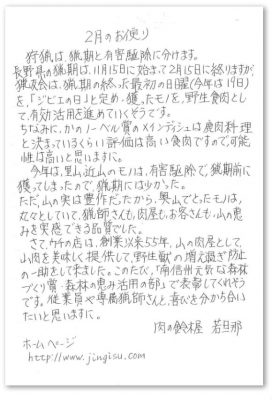 2月のお便り
狩猟は、猟期と有害駆除に分けます。
長野県の猟期は、11月15日に始まって2月15日に終りますが、
猟友会は、猟期の終った最初の日曜(今年は19日)
を、「ジビエの日」と定め、獲ったモノを、野生食肉とし
て、有効活用を進めていくそうです。
ちなみに、かのノーベル賞のメインディシュは鹿肉料理
と決まっているくらい評価は高い食肉ですので、可能
性は高いと思いますに。
今年は、里山、近山のモノは、有害駆除で、猟期前に
獲ってしまったので、猟期には少なかった。
ただ、山の実は豊作だったから、奥山でとったモノは、
丸々としていて、猟師さんも、肉屋も、お客さんも、山の恵
みを実感できる品質でした。
さて、ウチの店は、創業以来55年、山の肉屋として、
山肉を美味しく提供して、野生獣の増え過ぎ防止
の一助をして来ました。このたび、「南信州元気な森林
づくり賞・森林の恵み活用の部」で表彰してくれそう
です。従業員や専属猟師さんと、喜びを分かち合い
たいと思いますに。
肉の鈴木屋 若旦那
ホームページ
http://www.jingisu.com/